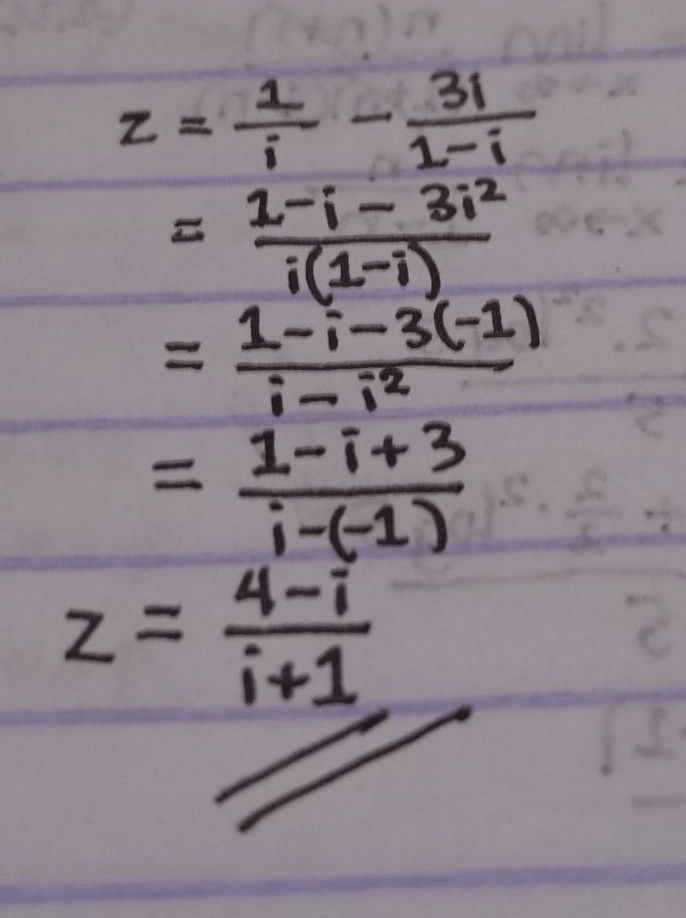 z = 1/i - 3i/1-i
= 1-i-3i²/i(1-i)
= 1-i-3(-1)/i-i²
= 1-i+3/i-(-1)
z = 4-i/i+1